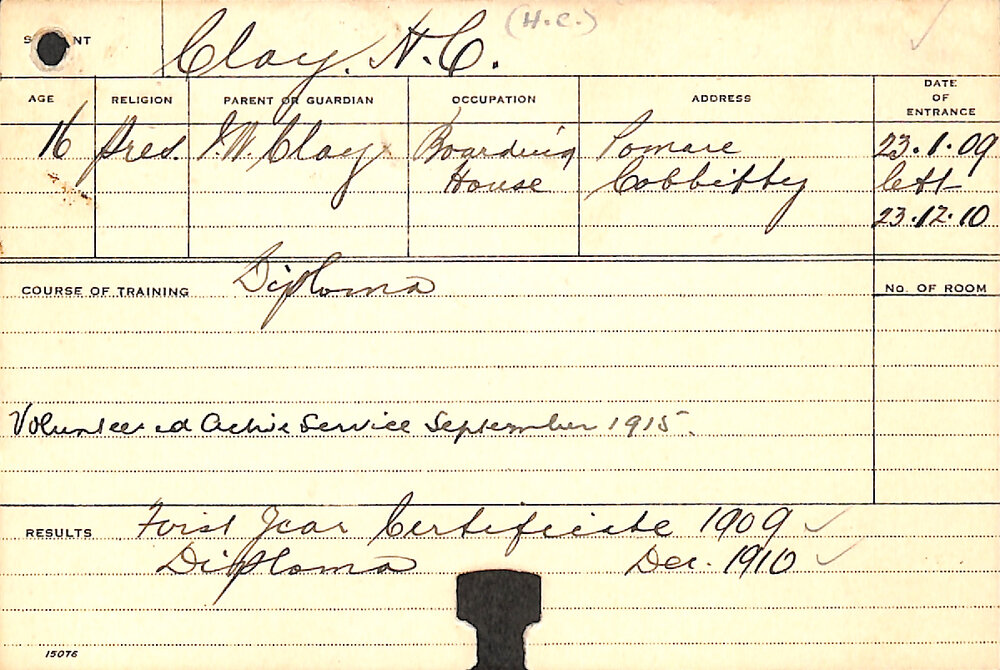 (H.C.)
S NT Clay. H.C.
AGE RELIGION PARENT OR GUARDIAN OCCUPATION ADDRESS DATE OF ENTRANCE
16 Pres. Clay Boarding Pomare 23.1.09
House Cobbitty left
23.12.10
COURSE OF TRAINING Diploma No. OF ROOM
Volunteered Active Service September 1915.
RESULTS First Year Certificate 1909
Diploma Dec. 1910
15076